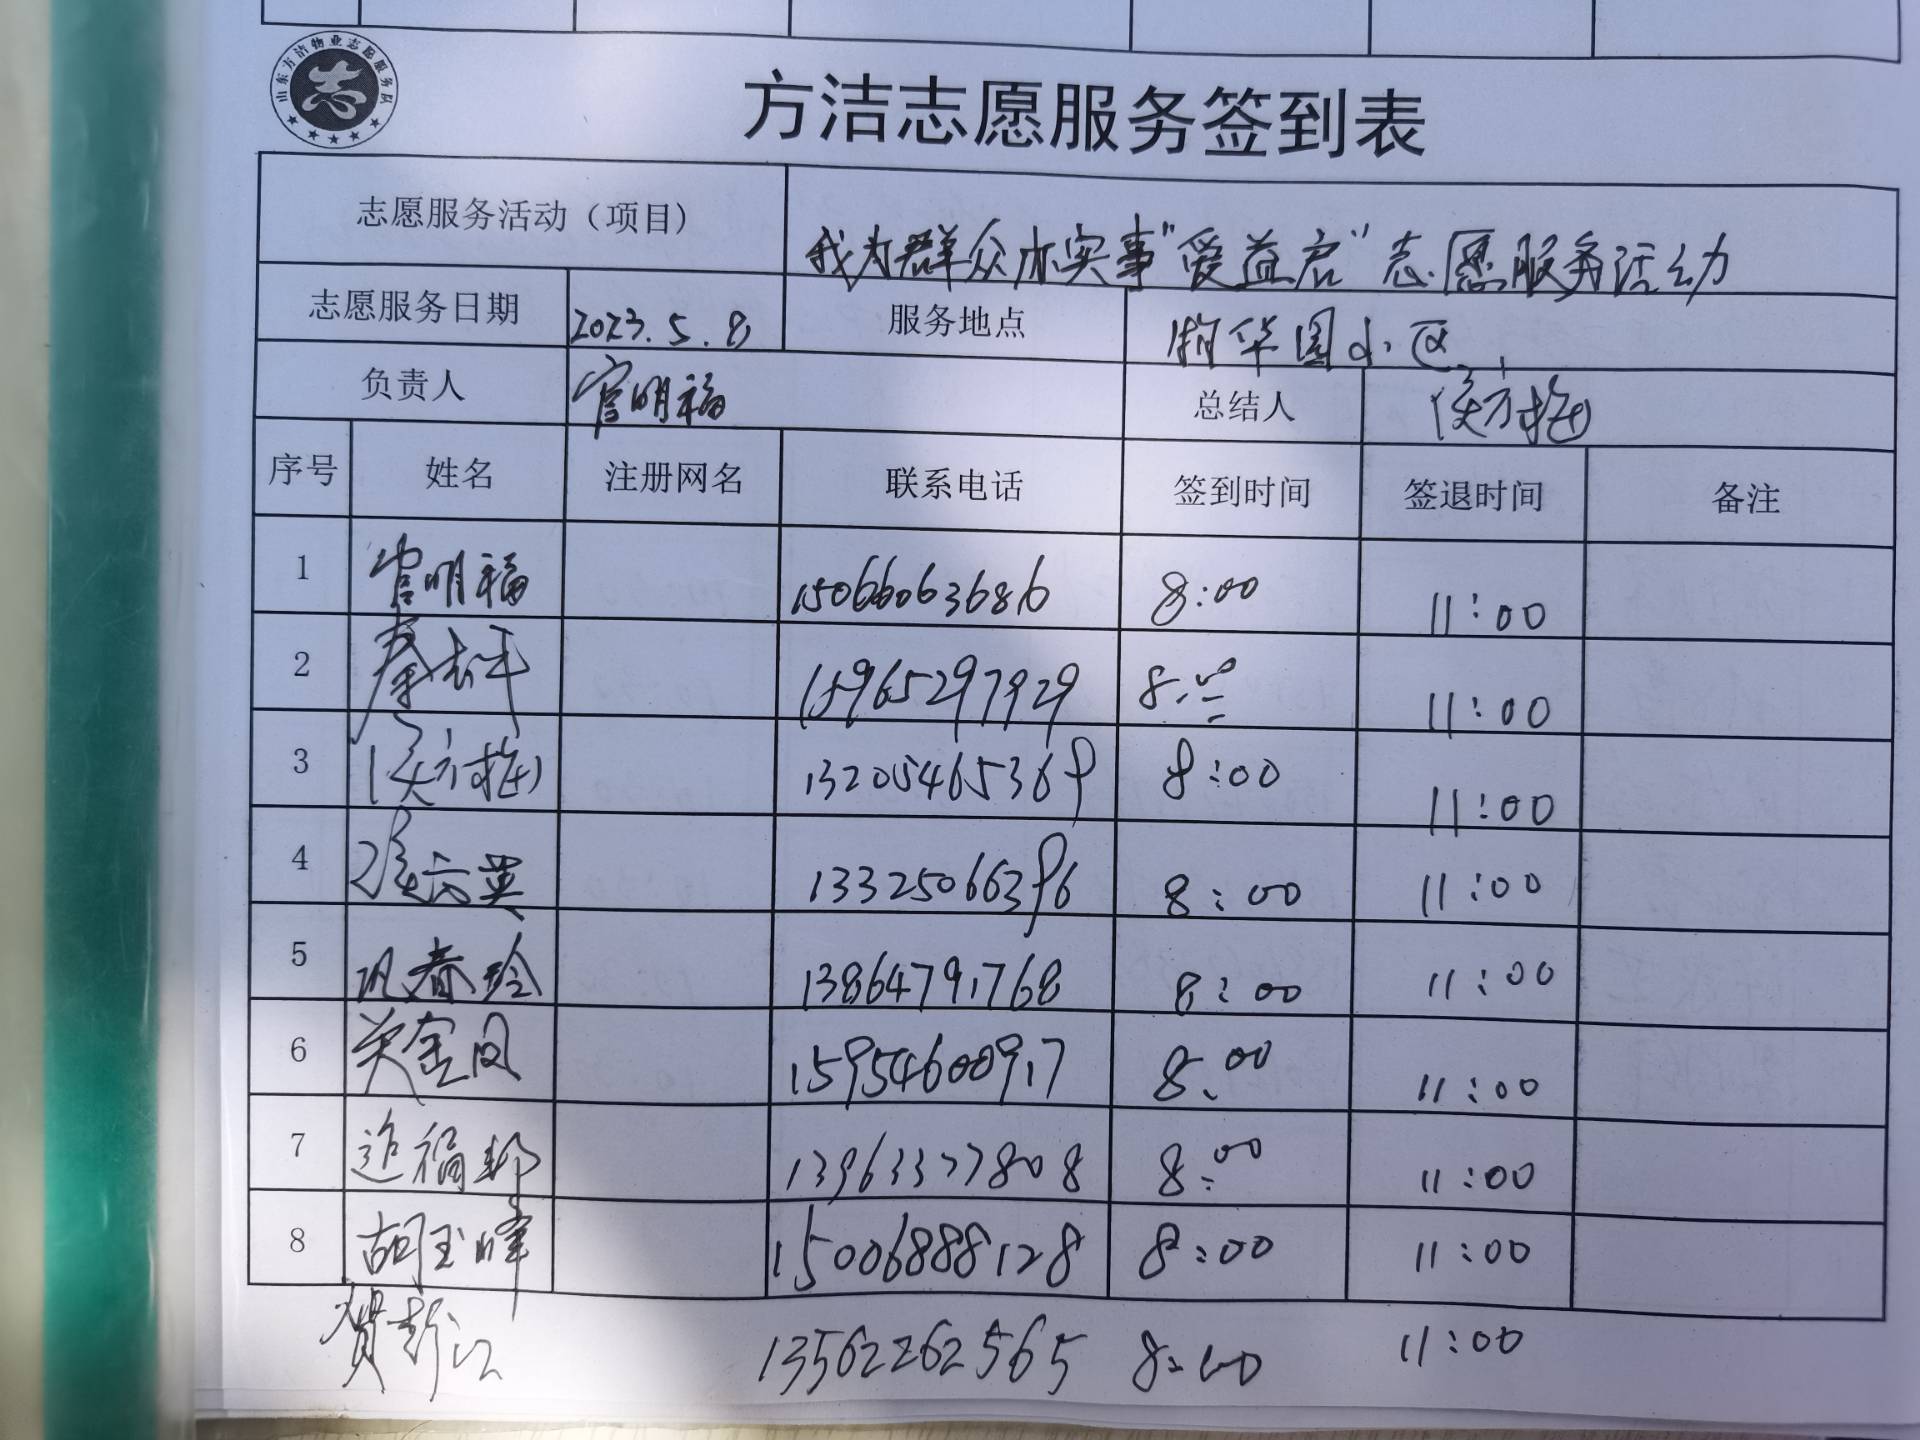 山东方洁物业志愿服务队
志
方洁志愿服务签到表
志愿服务活动（项目） 我为群众办实事"爱益启"志愿服务活动
志愿服务日期 2023.5.8 服务地点 华国小区
负责人 官明福 总结人 侯方
序号 姓名 注册网名 联系电话 签到时间 签退时间 备注
1 官明福 15066063686 8:00 11:00
2 秦 15965297929 8:00 11:00
3 侯方 13205465369 8:00 11:00
4 云英 13325066396 8:00 11:00
5 巩春玲 13864791768 8:00 11:00
6 关金凤 15954600917 8:00 11:00
7 追福邦 13963377808 8:00 11:00
8 胡玉峰 15006888128 8:00 11:00
贾彭江 13562262565 8:00 11:00